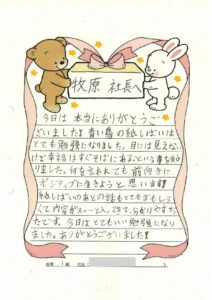 牧原 社長へ
今日は 本当にありがとうご
ざいました!! 青い鳥の紙しばいは
とても勉強になりました。目には見えない
けど幸せはすぐそばにあるという事を知
りました。何を言われても前向きに
ポジティブに生きようと思います!!
紙しばいのあとの話もとてもおもしろ
くて内容がスーッと入ってきて、分かりやすか
ったです。今日はとてもいい勉強になり
ました。ありがとうございました!!